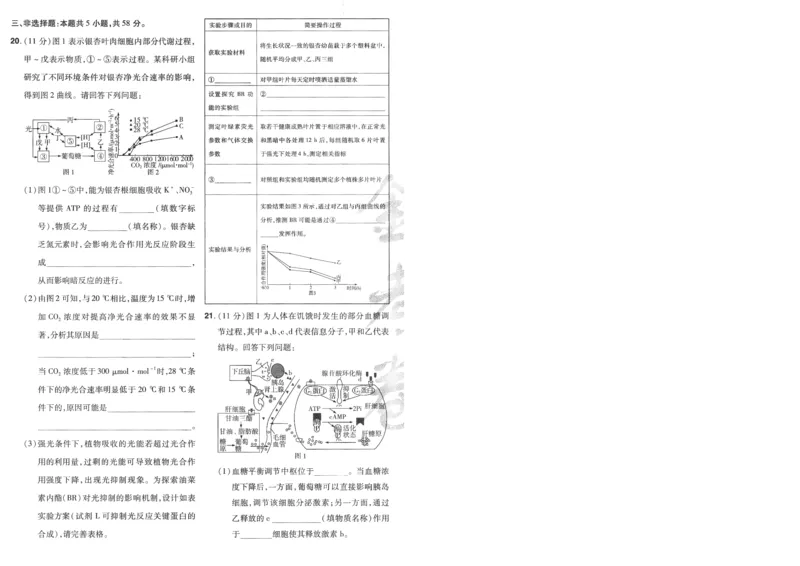 三、非选择题:本题共 5 小题,共 58 分。
20. (11 分)图 1 表示银杏叶肉细胞内部分代谢过程,
甲~戊表示物质,①~⑤表示过程。某科研小组
研究了不同环境条件对银杏净光合速率的影响,
得到图 2 曲线。请回答下列问题:
丙
光 ① 水 ② 
[H] [H]
戊 甲 ⑤ 乙
③ 葡萄糖 ④
图 1
15 ℃
20 ℃
28 ℃
B
C
A
0 400 800 1200 1600 2000
CO₂ 浓度/(μmol·mol⁻¹)
图 2
(1)图 1①~⑤中,能为银杏根细胞吸收 K⁺、NO₃⁻
等提供 ATP 的过程有________(填数字标
号),物质乙为________(填名称)。银杏缺
乏氮元素时,会影响光合作用光反应阶段生
成________________________________,
从而影响暗反应的进行。
(2)由图 2 可知,与 20 ℃相比,温度为 15 ℃时,增
加 CO₂ 浓度对提高净光合速率的效果不显
著,分析其原因是____________________
________________________________;
当 CO₂ 浓度低于 300 μmol·mol⁻¹时,28 ℃条
件下的净光合速率明显低于 20 ℃和 15 ℃条
件下的,原因可能是____________________
________________________________。
(3)强光条件下,植物吸收的光能若超过光合作
用的利用量,过剩的光能可导致植物光合作
用强度下降,出现光抑制现象。为探索油菜
素内酯(BR)对光抑制的影响机制,设计如表
实验方案(试剂 L 可抑制光反应关键蛋白的
合成),请完善表格。
实验步骤或目的 简要操作过程
获取实验材料
将生长状况一致的银杏幼苗栽于多个塑料盆中,
随机平均分成甲、乙、丙三组
①________ 对甲组叶片每天定时喷洒适量蒸馏水
设置探究 BR 功
能的实验组
②________________________________
________________________________
测定叶绿素荧光
参数和气体交换
参数
取若干健康成熟叶片置于相应溶液中,在正常光
和黑暗中各处理 12 h 后,每组随机取 6 片叶置
于强光下处理 4 h,测定相关指标
③________ 对照组和实验组均随机测定多个植株多片叶片
实验结果与分析
实验结果如图 3 所示,通过对乙组与丙组曲线的
分析,推测 BR 可能是通过④____________
______发挥作用。
光合作用强度(相对值)
乙
0 1 2 3 时间(h)
图3
21. (11 分)图 1 为人体在饥饿时发生的部分血糖调
节过程,其中 a、b、c、d 代表信息分子,甲和乙代表
结构。回答下列问题:
下丘脑 乙 e
b
胰岛
甲 肾上腺
肝细胞
甘油三酯
甘油、脂肪酸
糖原 葡萄糖
毛细血管
腺苷酸环化酶
d
激活 抑制
ATP 2Pi 肝细胞
cAMP
活化状态
肝糖原
图 1
(1)血糖平衡调节中枢位于________。当血糖浓
度下降后,一方面,葡萄糖可以直接影响胰岛
细胞,调节该细胞分泌激素;另一方面,通过
乙释放的 e ____________(填物质名称)作用
于________细胞使其释放激素 b。